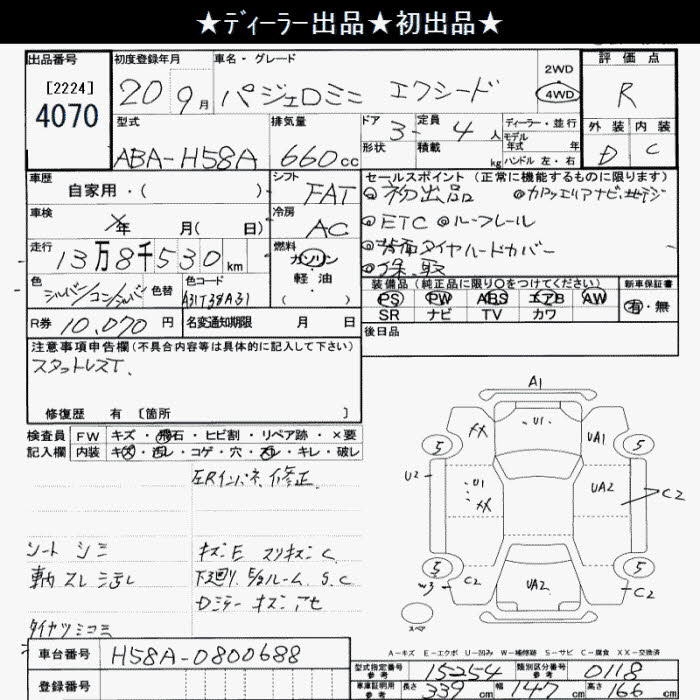 ★ディーラー出品★初出品★
出品番号
[2224]
4070
初度登録年月
20 9月
車名・グレード
パジェロミニ エクシード
2WD
4WD
評価点
R
型式
ABA-H58A
排気量
660cc
ドア 3
形状
定員 4人
積載 kg
ディーラー・並行
モデル年式 年
ハンドル 左・右
外装 内装
D C
車歴
自家用・( )
シフト
FAT
セールスポイント (正常に機能するものに限ります)
◎初出品 ◎カロッツェリアナビ、地デジ
車検
年 月( 日)
冷房
AC
◎ETC ◎ルーフレール
走行
13万8千530km
燃料
ガソリン
軽油
( )
◎背面タイヤハードカバー
◎保、取
色
シルバー/コンシルバー
色替
色コード
A31T39A31
装備品 (純正品に限り○をつけてください)
PS PW ABS エアB AW
SR ナビ TV カワ
新車保証書
有・無
R券 10,070円
名変通知期限 月 日
後日品
注意事項申告欄(不具合内容等は具体的に記入して下さい)
スタットレスT、
修復歴 有 〔箇所 〕
検査員記入欄
FW キズ・飛石・ヒビ割・リペア跡・×要
内装 キズ・汚レ・コゲ・穴・スレ・キレ・破レ
左Rインパネ、修正
シート シミ
キズE スリキズニC
車内 スレ ヨゴレ
下廻リ E/gルーム S、C
Dミラー キズ アセ
タイヤツミコミ
A1
U1
XX
UA1
5
5
U2
U1
XX
UA2
C2
5
5
W3
C2
UA2
C2
スペア
A-キズ E-エクボ U-凹み W-補修跡 S-サビ C-腐食 XX-交換済
車台番号
H58A-0800688
登録番号
型式指定番号 参考 15254
類別区分番号 参考 0118
車庫証明用 参考 長さ 339cm 幅 147cm 高さ 166cm